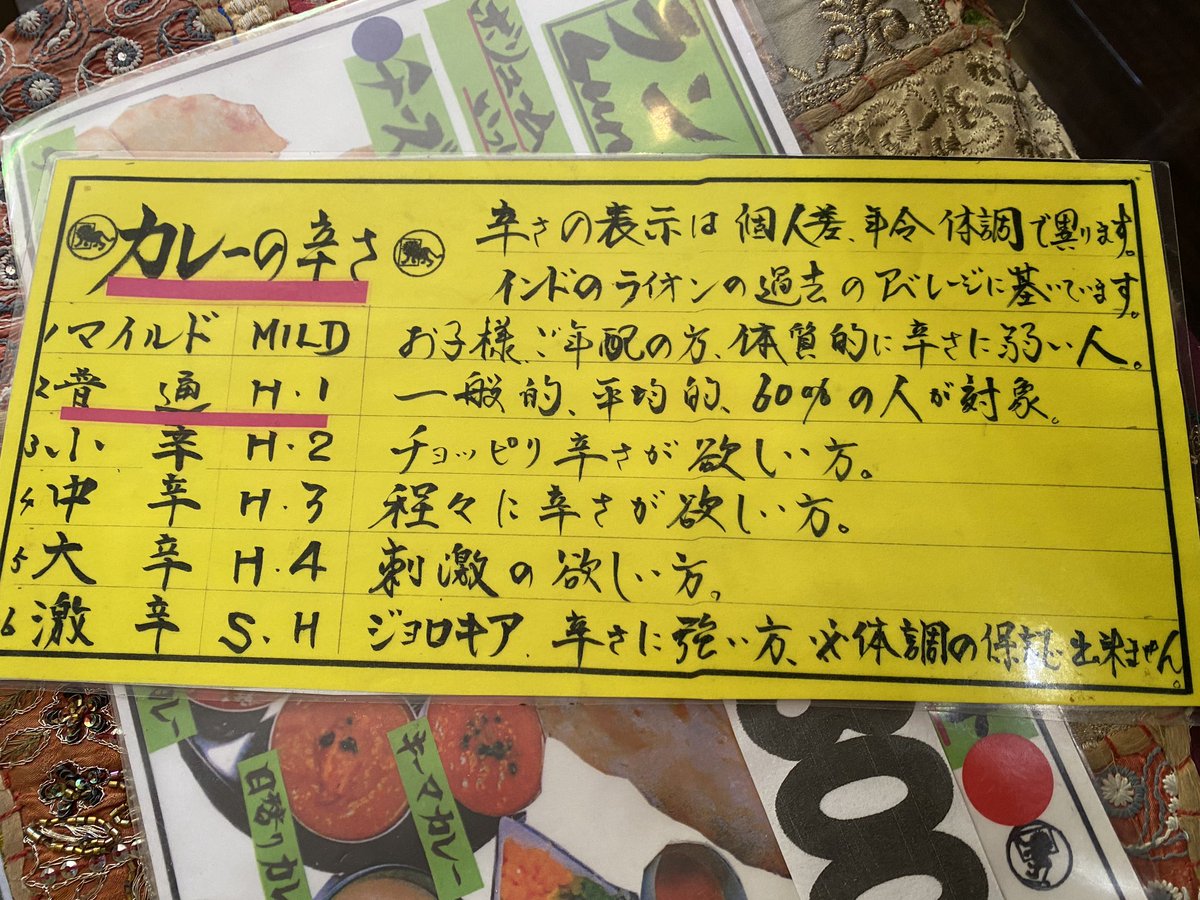 ナン
チーズ
カレーの辛さ
辛さの表示は個人差、年令体調で異ります。
インドのライオンの過去のアベレージに基いています。
1マイルド MILD お子様、ご年配の方、体質的に辛さに弱い人。
2普通 H.1 一般的、平均的、60%の人が対象。
3、小辛 H.2 チョッピリ辛さが欲しい方。
4中辛 H.3 程々に辛さが欲しい方。
5大辛 H.4 刺激の欲しい方。
6激辛 S.H ジョロキア、辛さに強い方、※体調の保証出来ません。
カレー
日替りカレ
キーマカレー
300